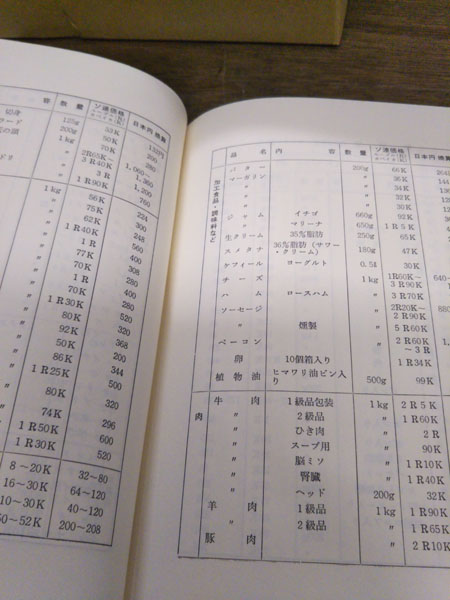 容 数量 ソ連価格 日本円換算
125g 33K 132円
200g 50K 200
1kg 70K 280
〃 2R65K～3R40K 1,060～1,360
〃 3R 1,200
〃 1R90K 760
1kg 56K 224
〃 75K 300
〃 62K 248
〃 1R40K 560
〃 1R 400
〃 77K 308
〃 70K 280
〃 1R 400
〃 70K 280
〃 1R30K 520
〃 80K 320
〃 92K 368
〃 50K 200
〃 86K 344
〃 1R25K 500
〃 80K 320
〃 74K 296
〃 1R50K 600
〃 1R30K 520
8～20K 32～80
16～30K 64～120
10～30K 40～120
50～52K 200～208
品名 内容 数量 ソ連価格 日本円換算
加工食品・調味料など
バター 200g 66K
マーガリン 〃 36K
〃 34K
〃 32K
〃 30K
ジャム イチゴ 660g 92K
〃 マリーナ 650g 1R5K
生クリーム 35%脂肪 250g 65K
スメタナ 36%脂肪（サワー・クリーム） 180g 47K
ケフィール ヨーグルト 0.5l 30K
チーズ 1kg 1R60K～3R90K
ハム ロースハム 〃 3R70K
ソーセージ 〃 2R20K～2R90K
〃 燻製 〃 5R60K
ベーコン 〃 2R60K～3R
卵 10個箱入り 1R34K
植物油 ヒマワリ油ビン入り 500g 99K
肉
牛肉 1級品包装 1kg 2R5K
〃 2級品 〃 1R60K
〃 ひき肉 〃 2R
〃 スープ用 〃 90K
〃 脳ミソ 〃 1R10K
〃 腎臓 〃 1R40K
〃 ヘッド 200g 32K
羊肉 1級品 1kg 1R90K
〃 2級品 〃 1R65K
豚肉 〃 2R10K